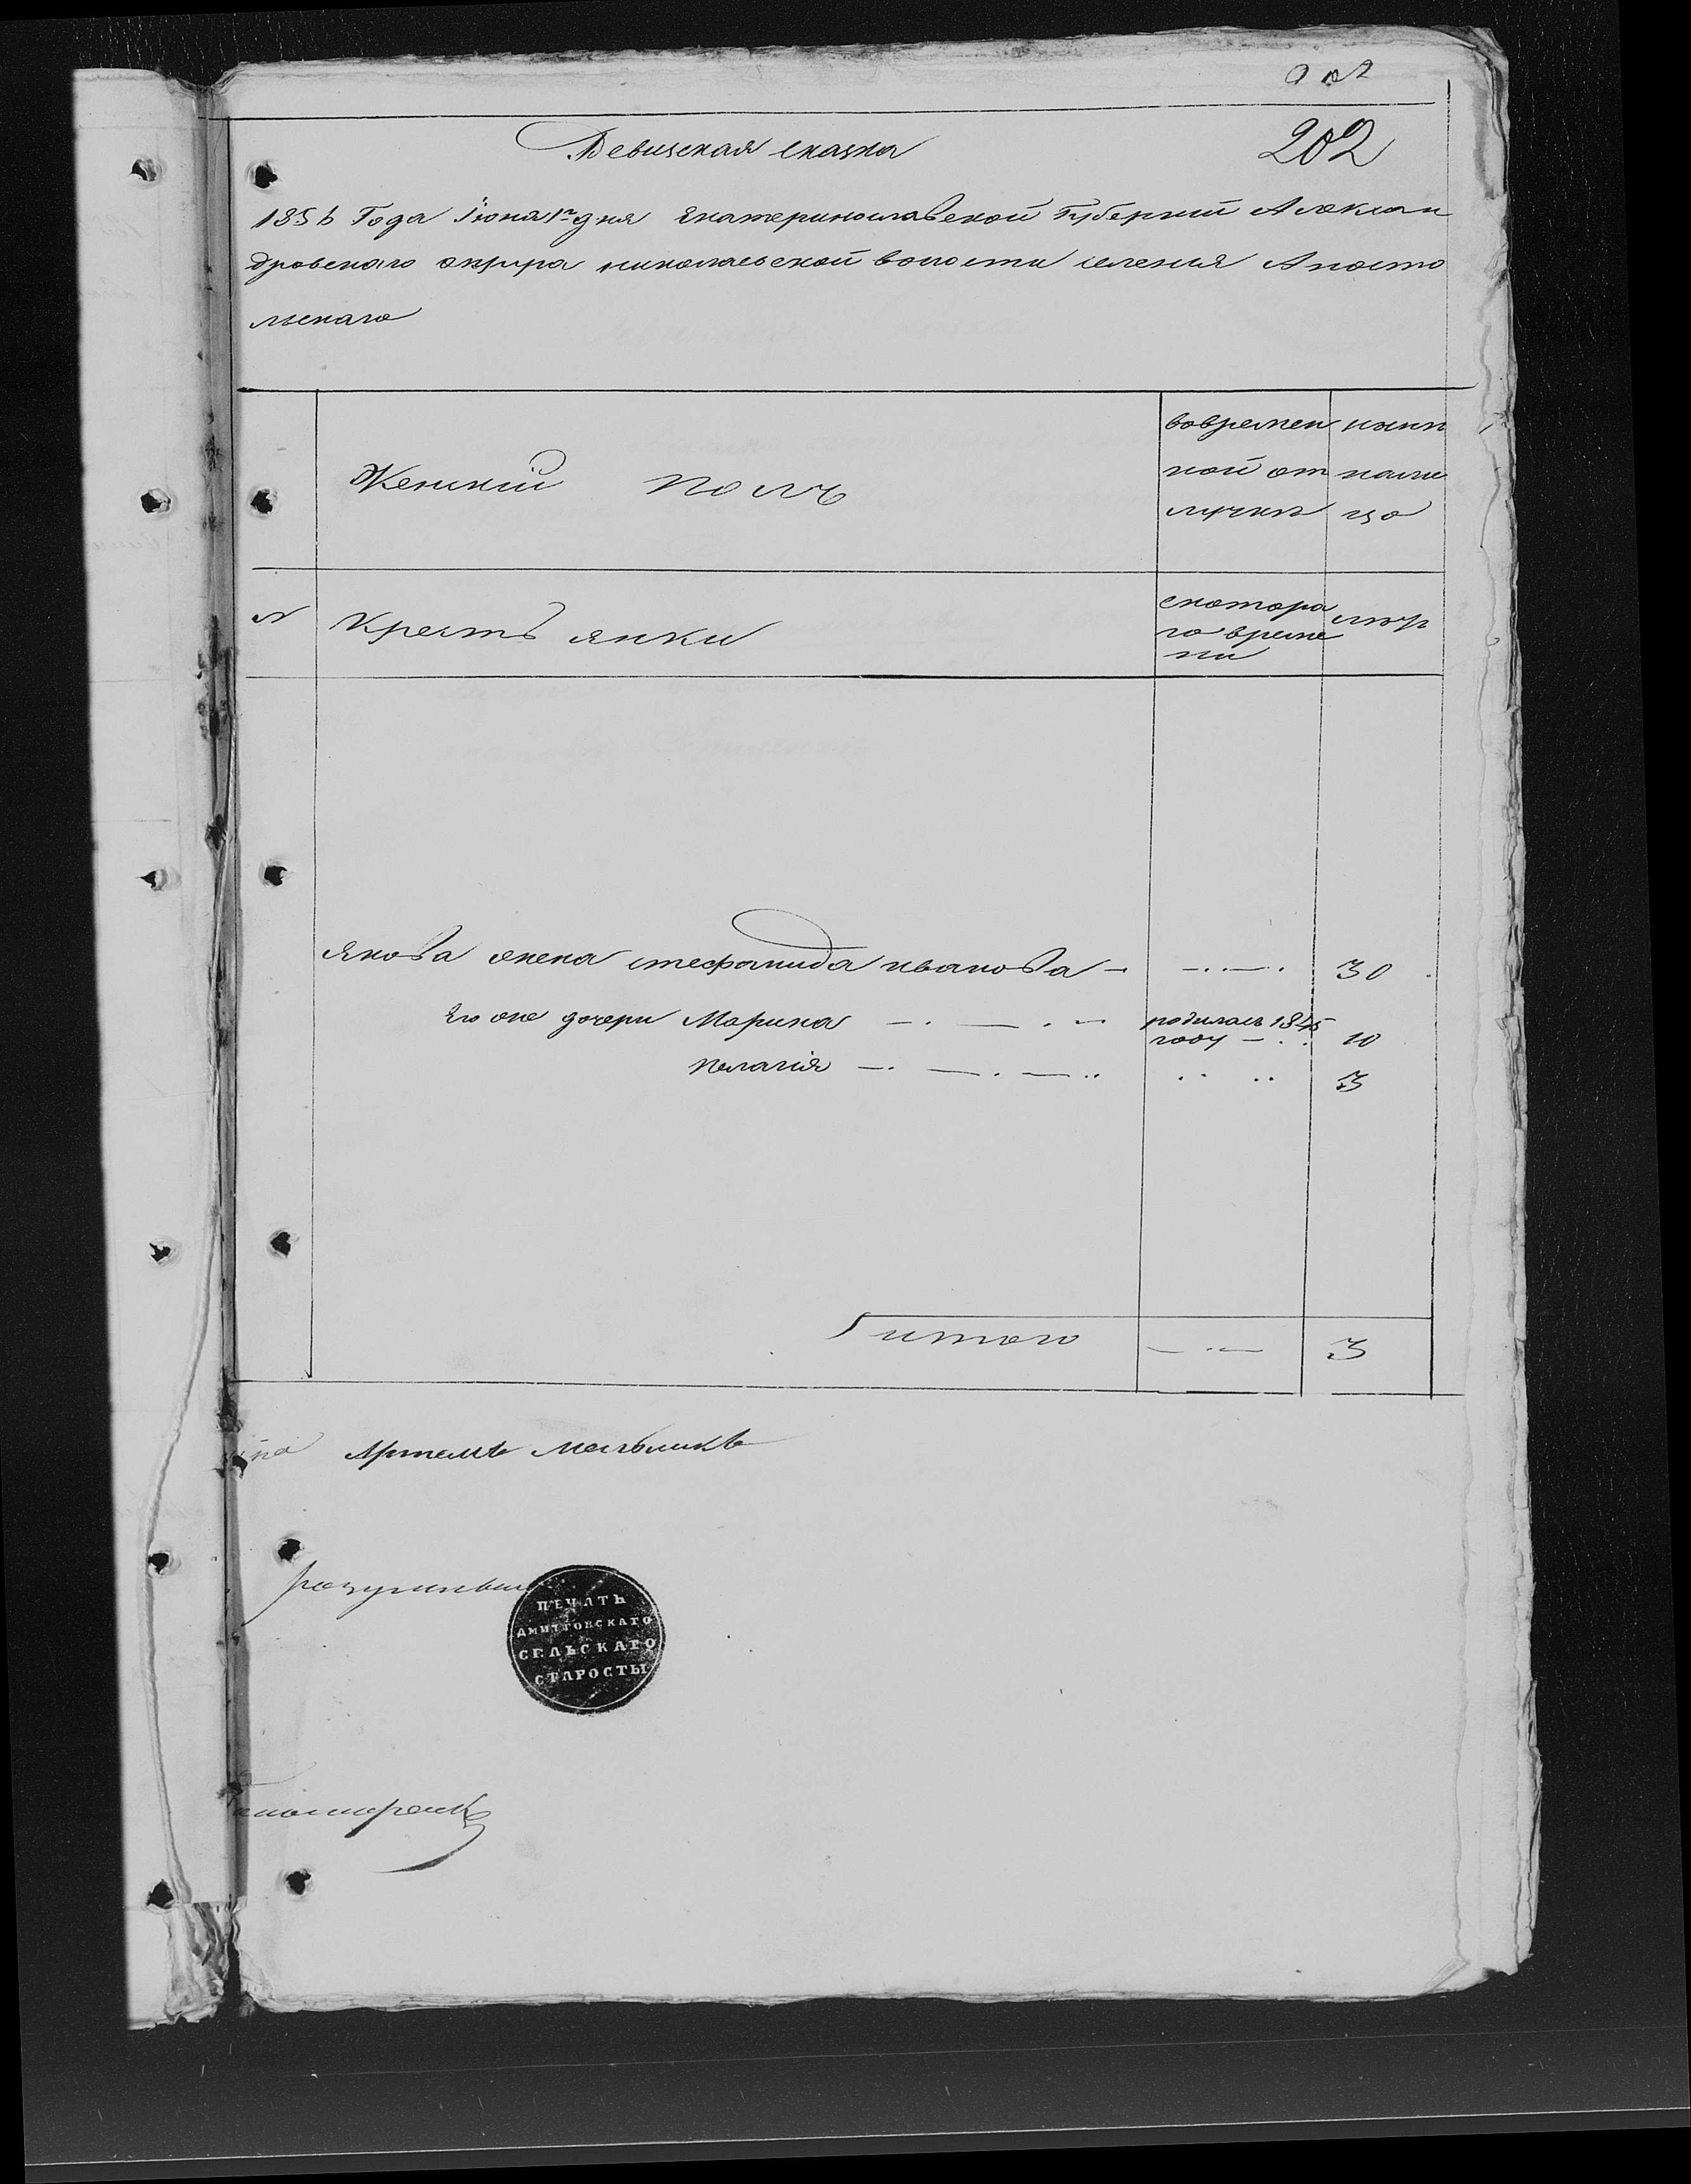 202
202
Ревизская сказка
1856 Года Iюня 1го дня Екатеринославской Губернiи Алексан
дровскаго округа николаевской волости селенiя Апосто
льскаго
Женскiй полъ
вовремен
ной от
лучкѣ
нынѣ
нали
цо
№ Крестьянки
скотора
го време
ни
лѣта
Якова жена стефанида иванова — — . — . 30
Его же дочери Марина — . — . — родилась 1845
году — . . 10
пелагiя — . — . — .. .. .. 3
итого — . — 3
Артемъ Мельникъ
ПЕЧАТЬ
ДМИТРОВСКАГО
СЕЛЬСКАГО
СТАРОСТЫ